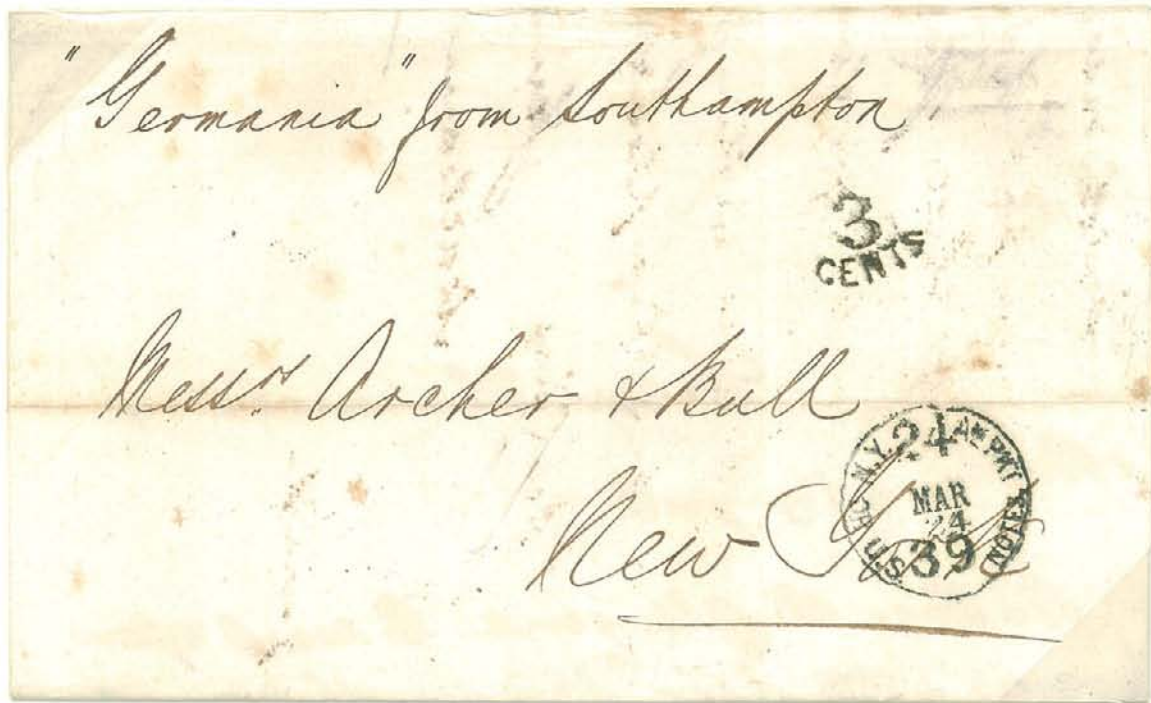 "Germania" from Southampton
3
CENTS
Messrs. Archer & Bull
New York
N.Y. 24 AM PKT
MAR
24
39
U.S NOTES